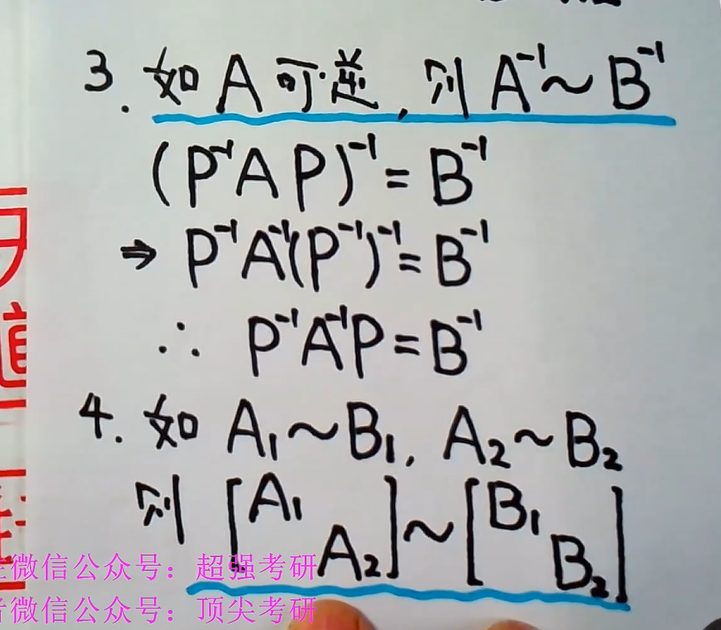 3. 如 A 可逆, 则 A⁻¹ ~ B⁻¹
(P⁻¹AP)⁻¹ = B⁻¹
⇒ P⁻¹A⁻¹(P⁻¹)⁻¹ = B⁻¹
∴ P⁻¹A⁻¹P = B⁻¹
4. 如 A₁ ~ B₁, A₂ ~ B₂
则 [A₁ A₂] ~ [B₁ B₂]
微信公众号：超强考研
微信公众号：顶尖考研
道